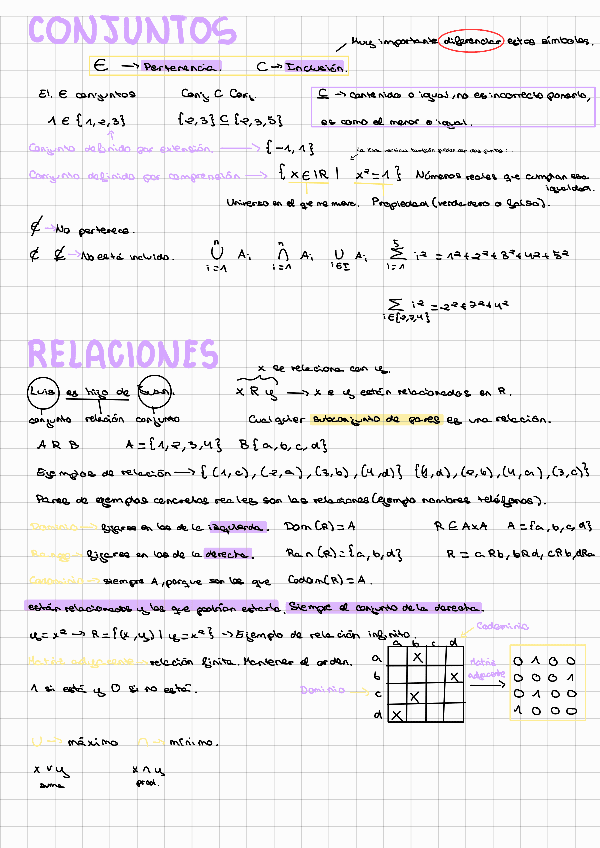 CONJUNTOS
Muy importante diferenciar estos símbolos.
∈ → Pertenencia. ⊂ → Inclusión.
El. ∈ conjuntos Conj ⊂ Conj. ⊆ → contenido o igual, no es incorrecto ponerlo,
1 ∈ {1,2,3} {2,3} ⊆ {2,3,5} es como el menor o igual.
Conjunto definido por extensión. → {-1,1}
Conjunto definido por comprensión → {x ∈ ℝ | x²=1} Números reales que cumplan esa
igualdad.
Universo en el que me muevo. Propiedad (verdadero o falso).
∉ → No pertenece.
⊄ ⊈ → No está incluido. ⋃ᵢ₌₁ⁿ Aᵢ ⋂ᵢ₌₁ⁿ Aᵢ ⋃ᵢ∈I Aᵢ ∑ᵢ₌₁⁵ i² = 1²+2²+3²+4²+5²
∑ i∈{2,3,4} i² = 2²+3²+4²
RELACIONES
x se relaciona con y.
Luis es hijo de Juan. x R y → x e y están relacionados en R.
conjunto relación conjunto Cualquier subconjunto de pares es una relación.
A R B A={1,2,3,4} B{a,b,c,d}
Ejemplos de relación → {(1,c),(2,a),(3,b),(4,d)} {(1,d),(2,b),(4,a),(3,c)}
Pares de ejemplos concretos reales son las relaciones (ejemplo nombres teléfonos).
Dominio → fijarse en los de la izquierda. Dom(R)=A R ⊆ AxA A={a,b,c,d}
Rango → fijarse en los de la derecha. Ran(R)={a,b,d} R = aRb, bRd, cRb, dRa
Codominio → siempre A, porque son los que Codom(R)=A.
están relacionados y los que podrían estarlo. Siempre el conjunto de la derecha.
y=x² → R={(x,y) | y=x²} → Ejemplo de relación infinita.
Codominio
a b c d
Matriz adyacente → relación finita. Mantener el orden.
1 si está y 0 si no está.
Dominio
a X
b X
c X
d X
Matriz
adyacente
0 1 0 0
0 0 0 1
0 1 0 0
1 0 0 0
∪ → máximo ∩ → mínimo.
x ∨ y x ∧ y
suma prod.